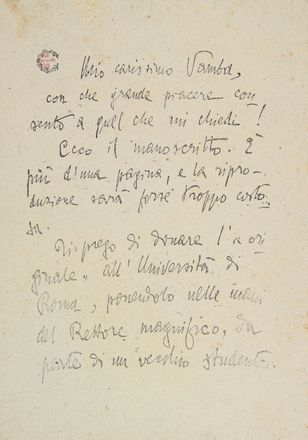 Mio carissimo Vamba,
con che grande piacere con
sento a quel che mi chiedi!
Ecco il manoscritto. È
più d'una pagina, e la ripro-
duzione sarà forse troppo costo
sa.
Ti prego di donare l'"ori
ginale" all'Università di
Roma, ponendolo nelle mani
del Rettore magnifico, da
parte di un vecchio studente.